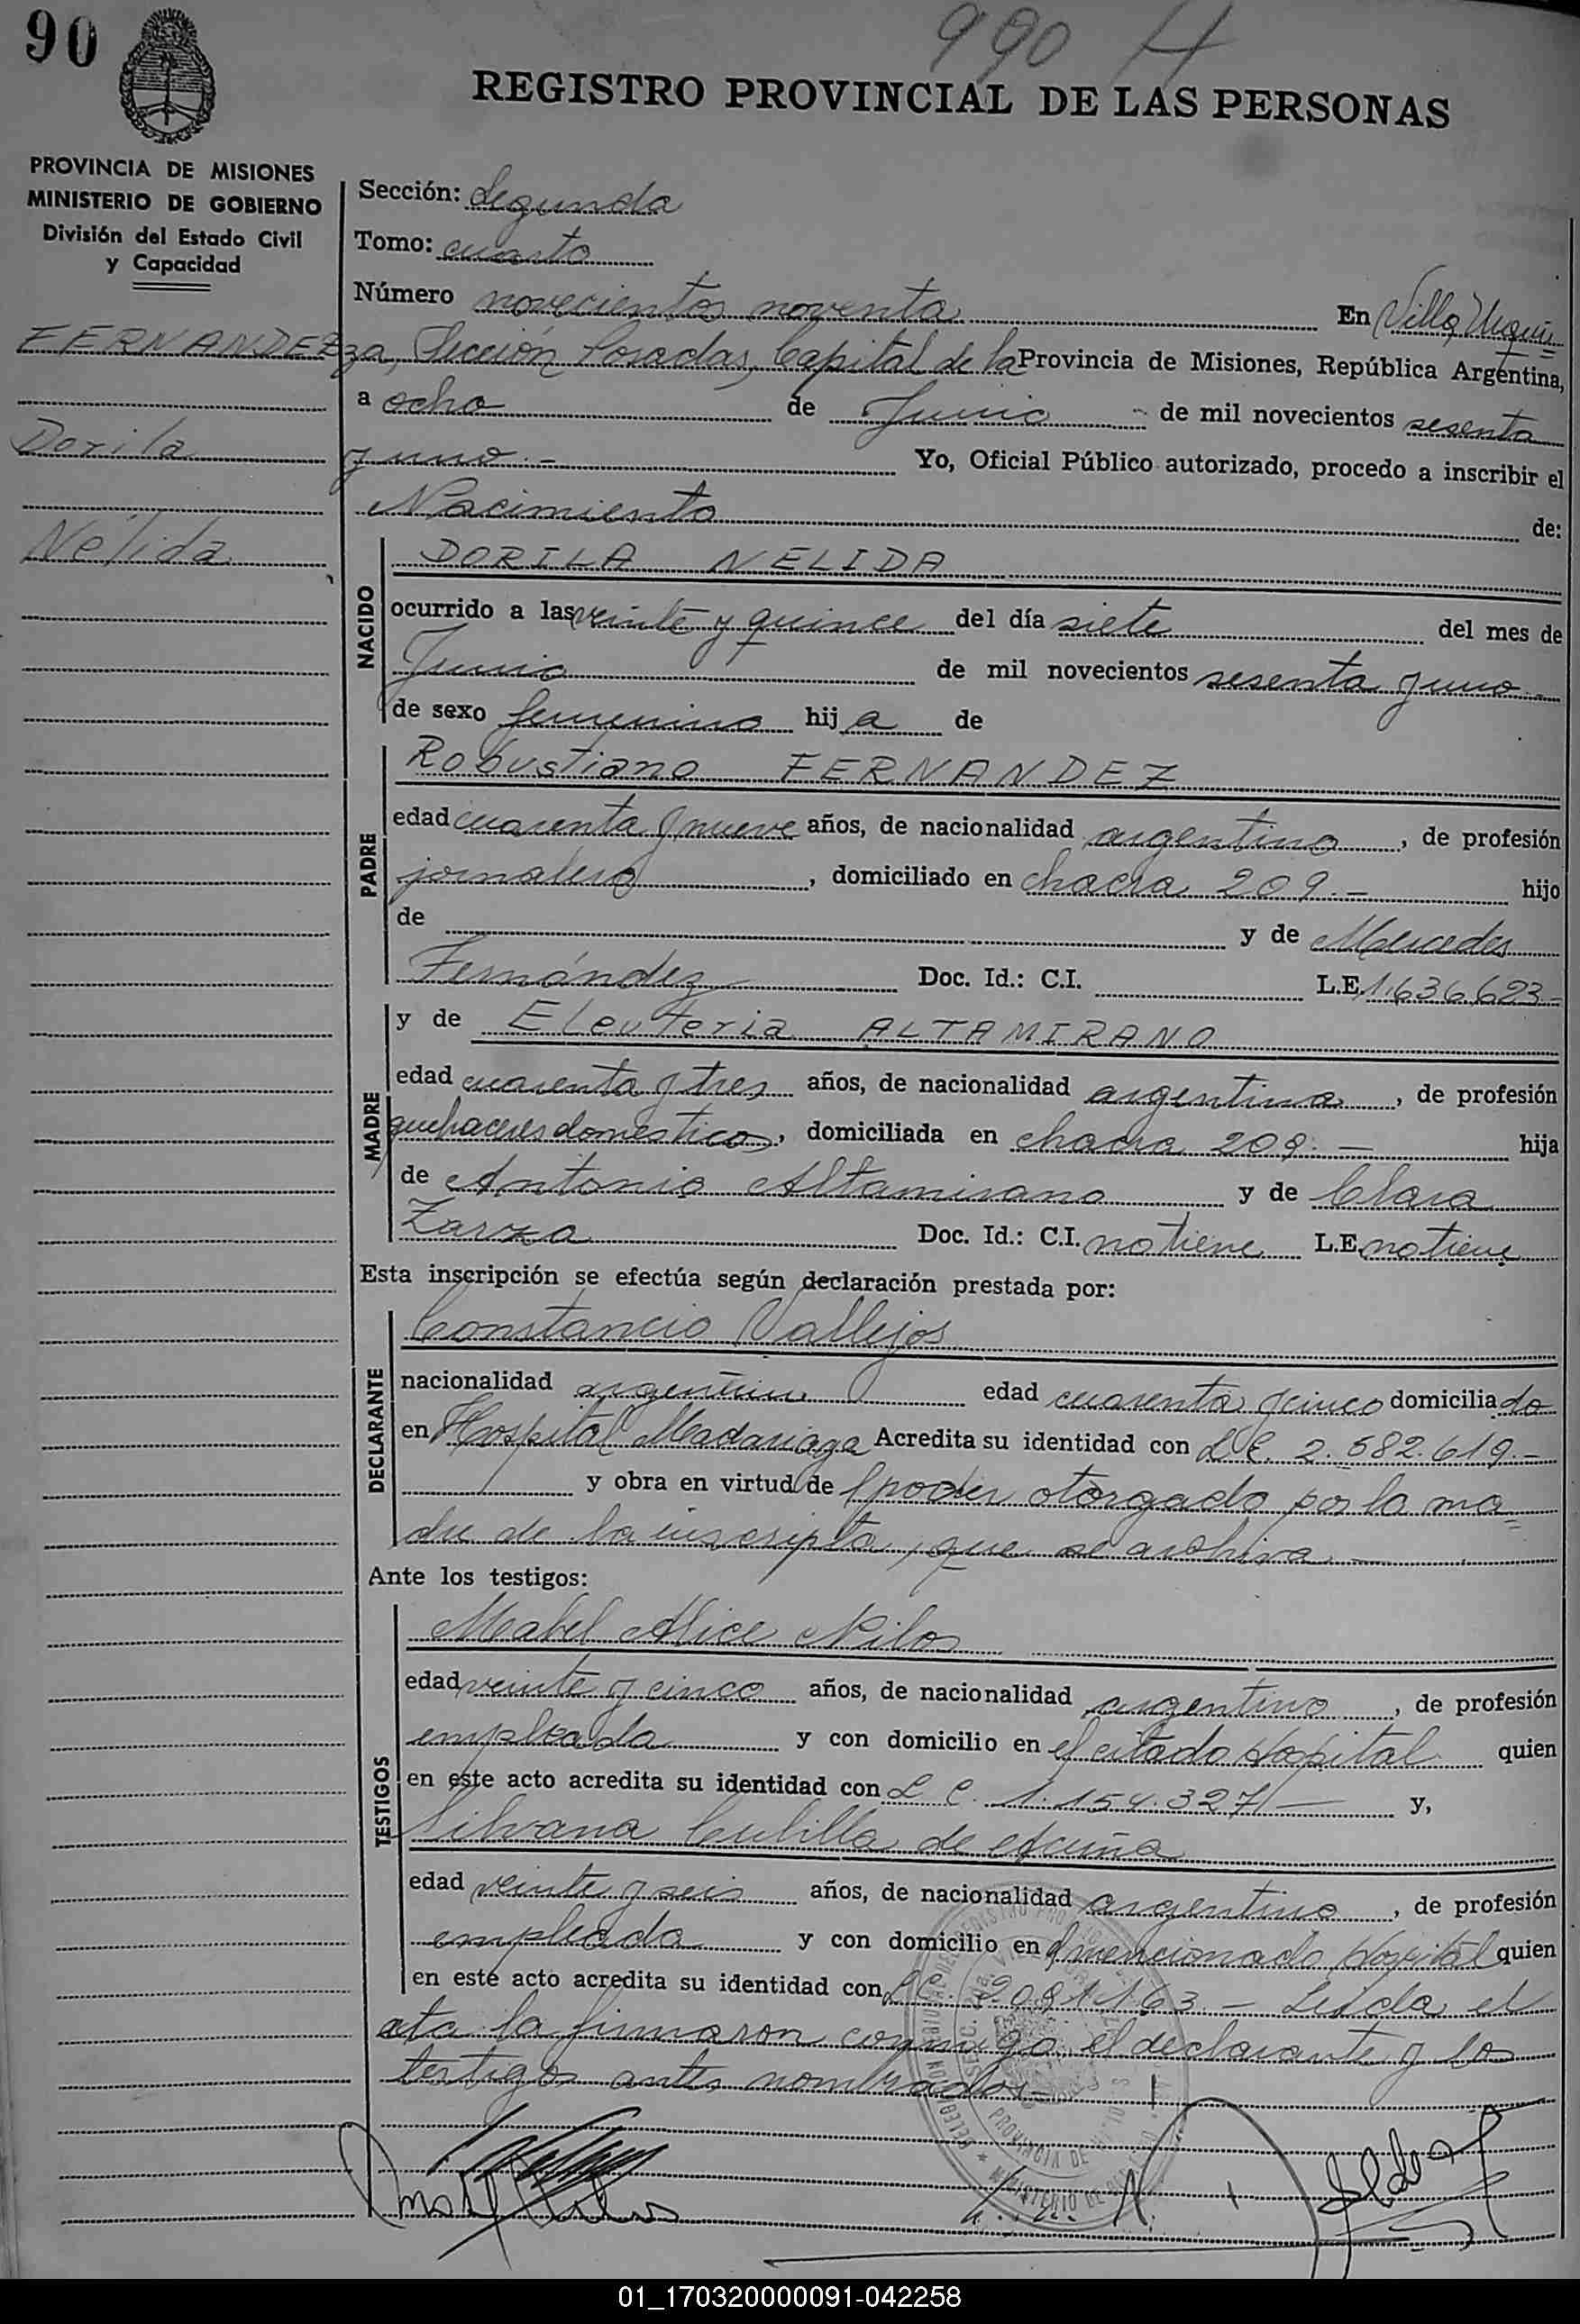 90
990 H
REGISTRO PROVINCIAL DE LAS PERSONAS
PROVINCIA DE MISIONES
MINISTERIO DE GOBIERNO
División del Estado Civil
y Capacidad
FERNANDEZ
Dorila
Nélida
Sección: Segunda
Tomo: cuarto
Número novecientos noventa En Villa Urqui=
za, Sección Posadas, Capital de la Provincia de Misiones, República Argentina,
a ocho de Junio - de mil novecientos sesenta
y uno.- Yo, Oficial Público autorizado, procedo a inscribir el
Nacimiento de:
NACIDO
DORILA NELIDA
ocurrido a las veinte y quince del día siete del mes de
Junio de mil novecientos sesenta y uno
de sexo femenino hij a de
PADRE
Robustiano FERNANDEZ
edad cuarenta y nueve años, de nacionalidad argentino, de profesión
jornalero, domiciliado en chacra 209.- hijo
de y de Mercedes
Fernández Doc. Id.: C.I. L.E. 1.636.623-
MADRE
y de Eleuteria ALTAMIRANO
edad cuarenta y tres años, de nacionalidad argentina, de profesión
quehaceres domesticos, domiciliada en chacra 209.- hija
de Antonio Altamirano y de Clara
Zarza Doc. Id.: C.I. no tiene L.E. no tiene
Esta inscripción se efectúa según declaración prestada por:
DECLARANTE
Constancio Vallejos
nacionalidad argentino edad cuarenta y cinco domiciliado
en Hospital Madariaga Acredita su identidad con L.E. 2.582.619.-
y obra en virtud de poder otorgado por la ma=
dre de la inscripta, que se archiva.-
Ante los testigos:
TESTIGOS
Mabel Alice Nilos
edad veinte y cinco años, de nacionalidad argentino, de profesión
empleada y con domicilio en el citado Hospital quien
en este acto acredita su identidad con L C. 1.154.327/- y,
Silvana Cubilla de Acuña
edad veinte y seis años, de nacionalidad argentino, de profesión
empleada y con domicilio en el mencionado Hospital quien
en este acto acredita su identidad con L C. 2.081.163.- Leida el
acta la firmaron conmigo el declarante y los
testigos antes nombrados.-
01_170320000091-042258